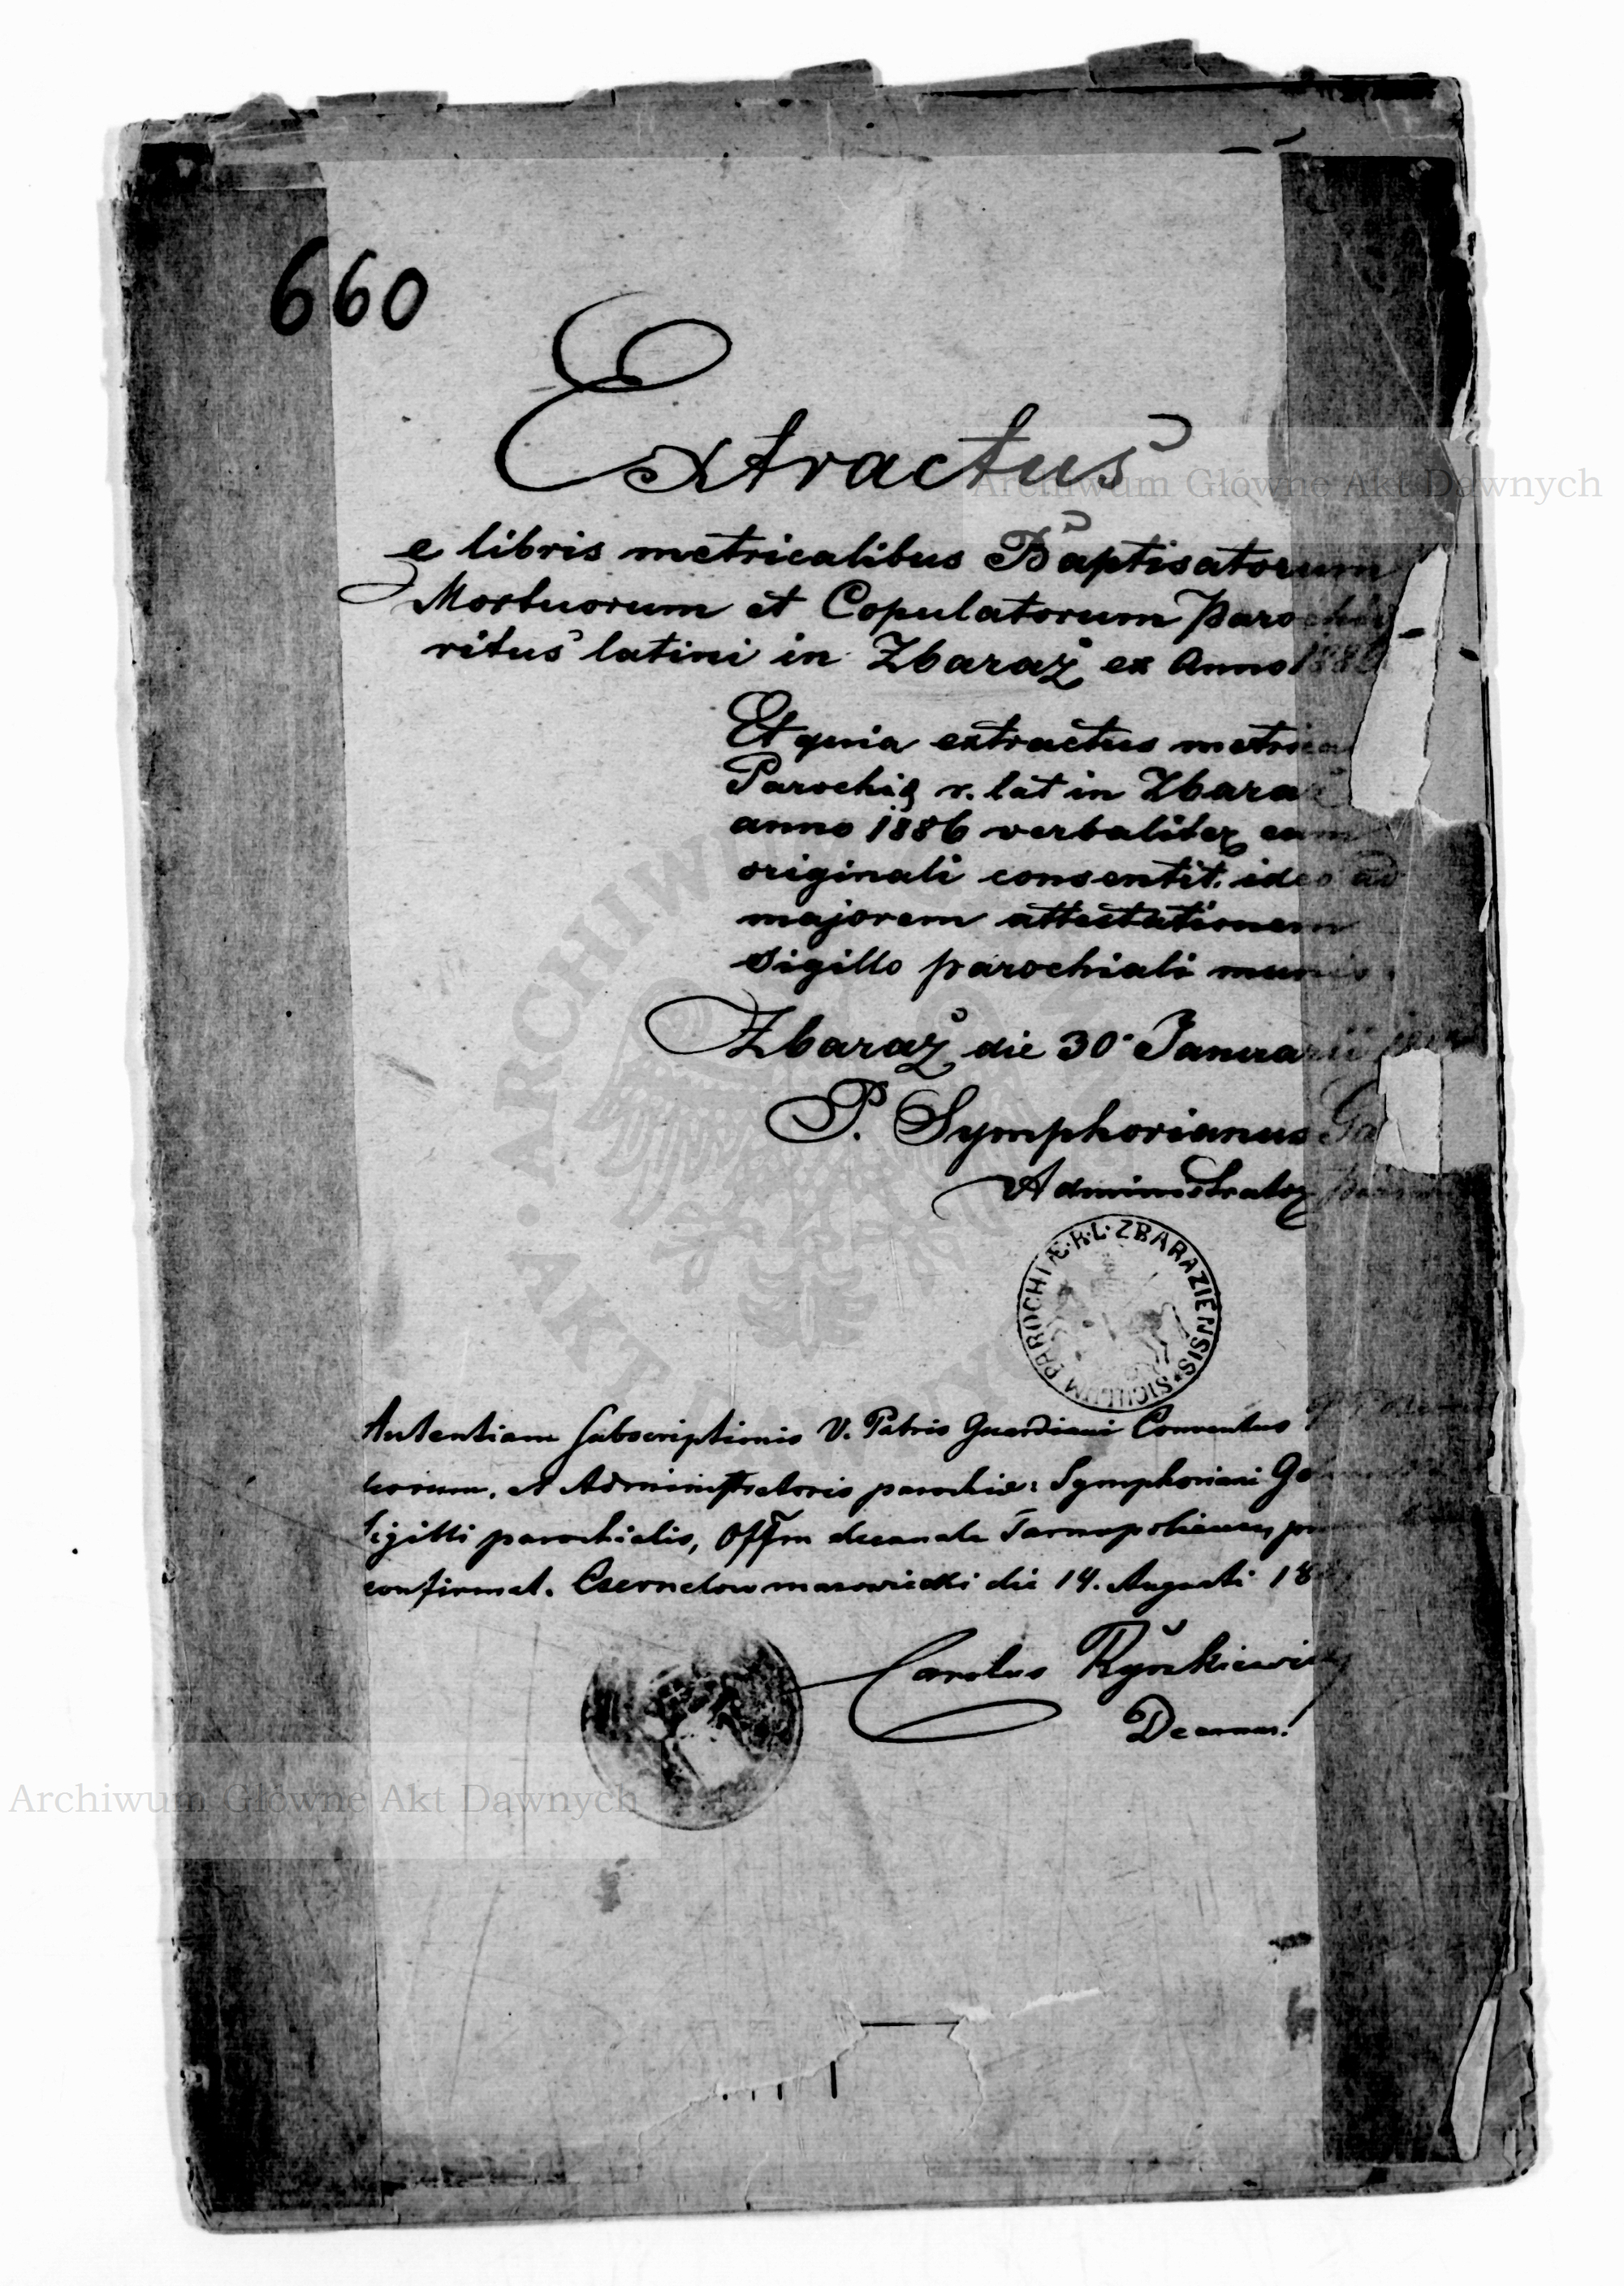 660
Extractus
e libris metricalibus Baptisatorum
Mortuorum et Copulatorum Parochię
ritus latini in Zbaraż ex Anno 1886
Et quia extractus metrica
Parochię r. lat in Zbaraż
anno 1886 verbaliter cum
originali consentit, ideo ad
majorem attestationem
sigillo parochiali munio.
Zbaraż die 30 Januarii
P. Symphorianus Ga
Administrator
SIGILLUM PAROCHIÆ·R·L·ZBARAZIENSIS
Autentiam subscriptionis V. Patris Guardiani Conventus
et Administratoris parochiæ: Symphoriani Ga
Sigilli parochialis, Offm decanale Tarnopoliense,
confirmat. Czernelow mazowiecki die 14. Augusti 18
Carolus
Decanus.
Archiwum Główne Akt Dawnych
Archiwum Główne Akt Dawnych
ARCHIWUM AKT DAWNYCH